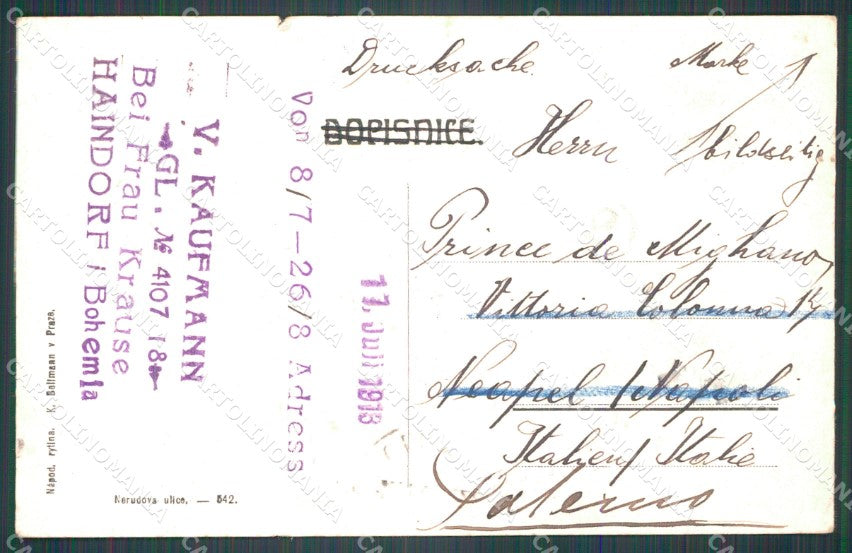 Drucksache. Marke
DOPISNICE.
Herrn bildseitig
Prince de Mighano
Vittoria Colonna
Neapel / Napoli
Italien / Italie
Salerno
V. KAUFMANN
GL. № 4107 18
Bei Frau Krause
HAINDORF / Bohemia
Von 8/7 — 26/8 Adress
11. Juli 1913
Nápod. rytina. K. Bellmann v Praze.
Nerudova ulice. — 542.
CARTOLINOMANIA